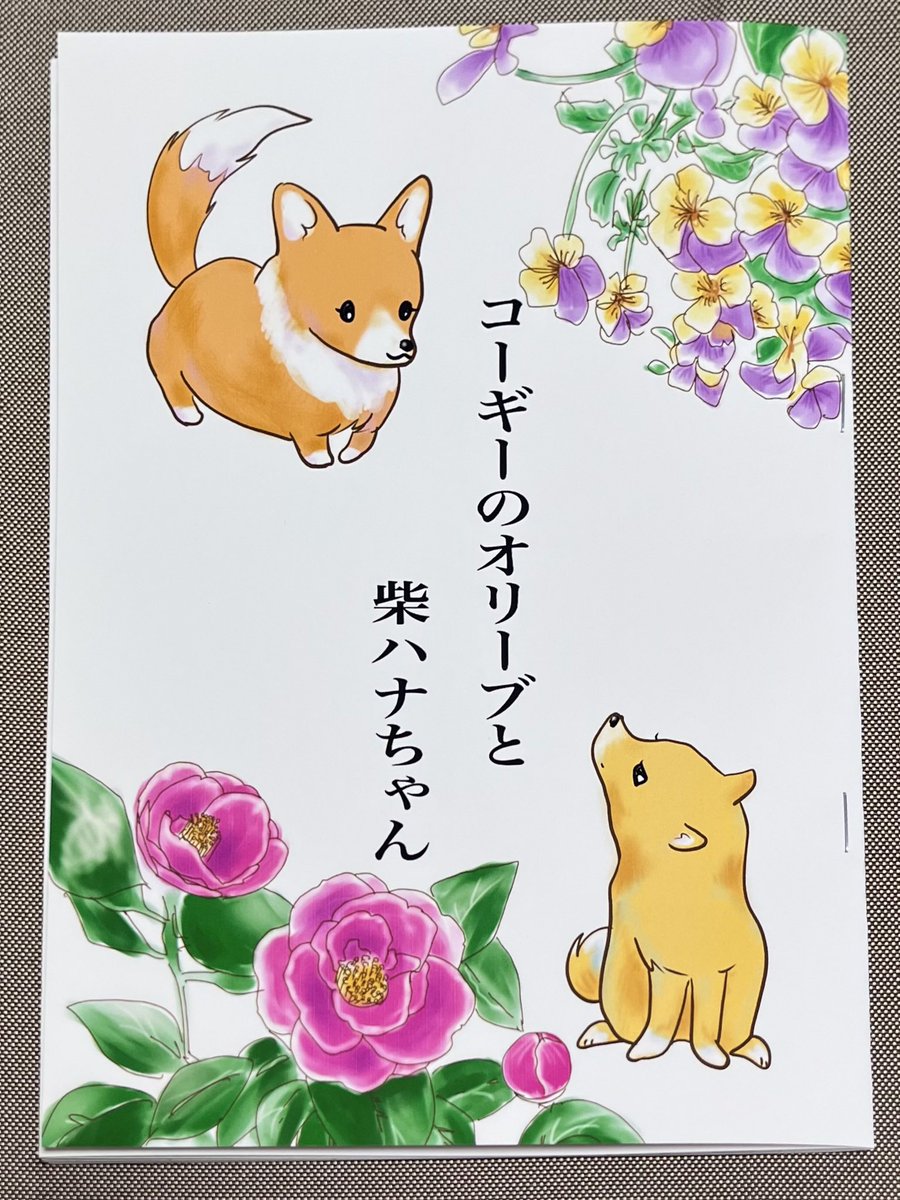 コーギーのオリーブと
柴ハナちゃん